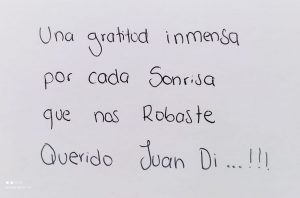 Una gratitud inmensa
por cada Sonrisa
que nos Robaste
Querido Juan Di...!!!